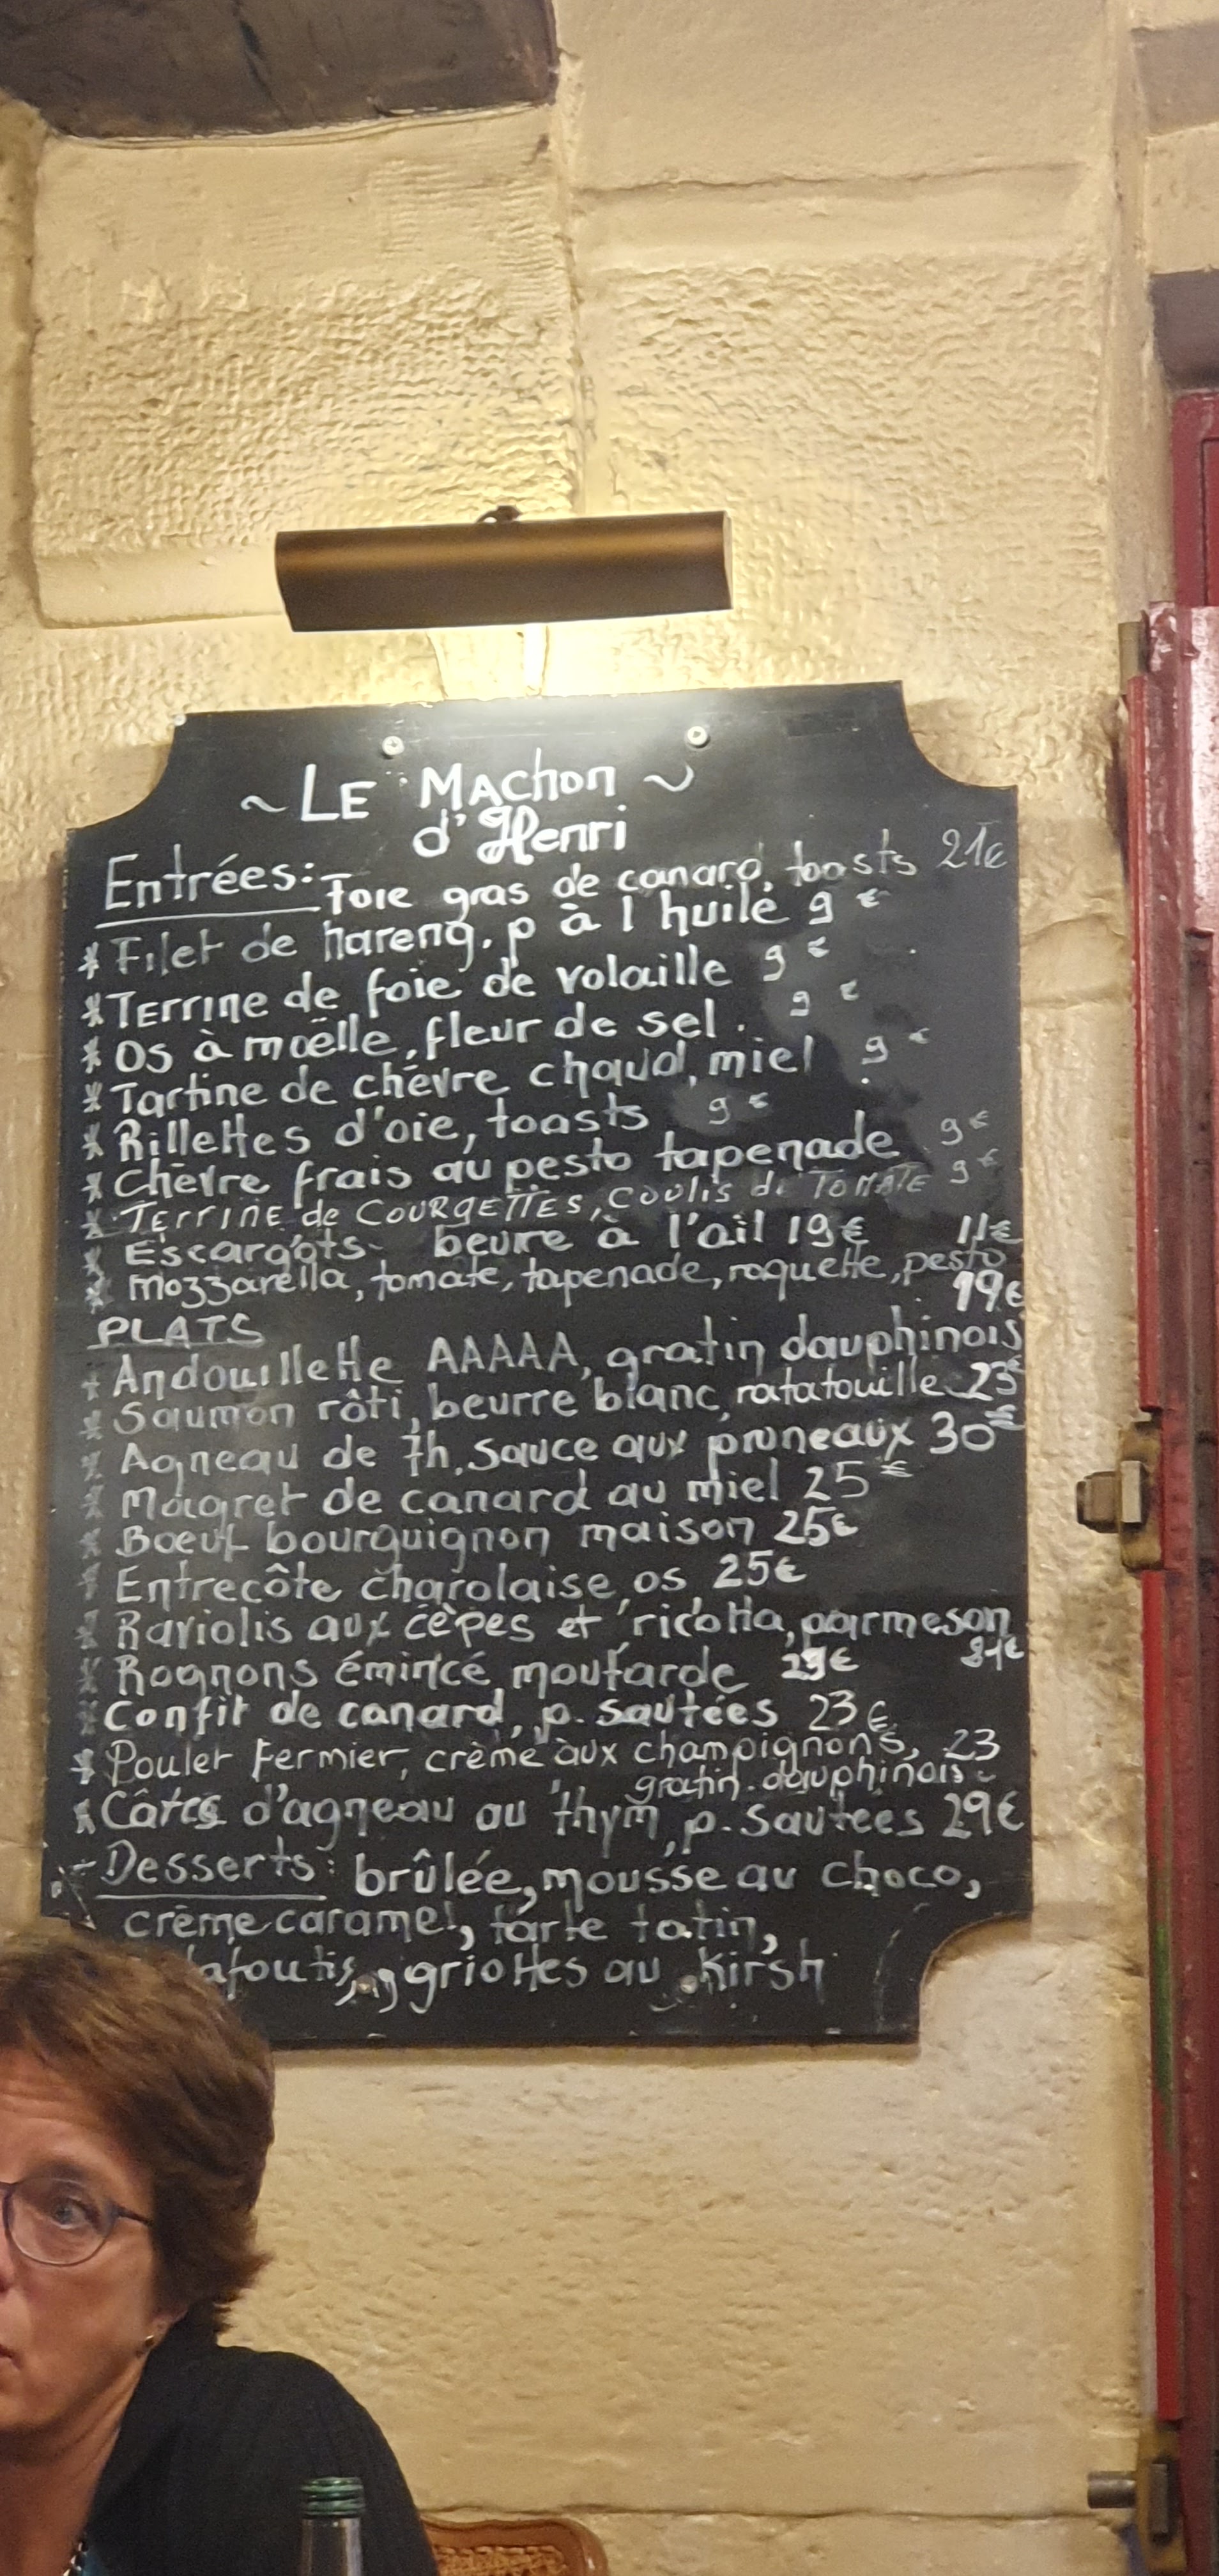 ~ LE MAchon ~
d'Henri
Entrées: Foie gras de canard, toasts 21€
* Filet de hareng, p à l huile 9 €
* Terrine de foie de volaille 9 €
* Os à moëlle, fleur de sel. 9 €
* Tartine de chèvre chaud, miel 9 €
* Rillettes d'oie, toasts 9 €
* Chèvre frais au pesto tapenade 9 €
* TErrINE de COURGETTES, COULIS de TOMATE 9 €
* Escargots beure à l'ail 19€ 11€
* mozzarella, tomate, tapenade, roquette, pesto
PLATS 19€
* Andouillette AAAAA, gratin dauphinois
* Saumon rôti, beurre blanc, ratatouille 23€
* Agneau de 7h, sauce aux pruneaux 30€
* Magret de canard au miel 25€
* Bœuf bourguignon maison 25€
* Entrecôte charolaise, os 25€
* Raviolis aux cèpes et ricotta, parmeson
* Rognons émincé, moutarde 21€
* Confit de canard, p. sautées 23€
* Poulet Fermier, crème aux champignons, 23
gratin dauphinois
* Côtes d'agneau au thym, p. sautees 29€
Desserts: brûlée, mousse au choco,
crème caramel, tarte tatin,
afoutis, griottes au Kirsh